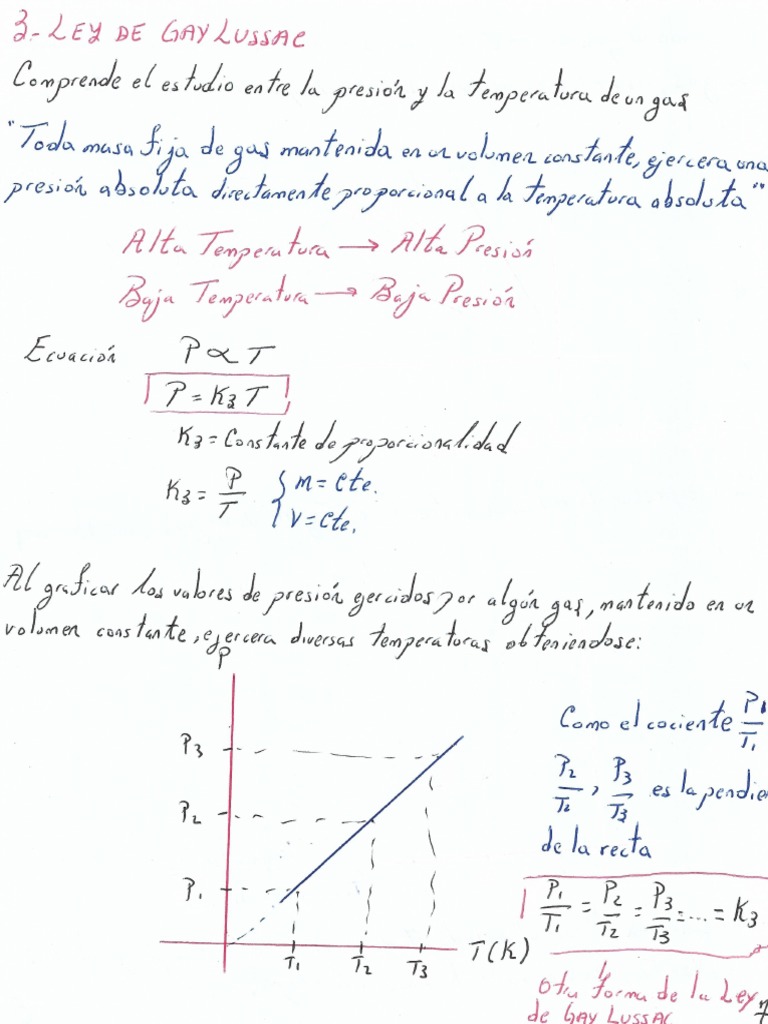 3.- LEY DE GAY LUSSAC
Comprende el estudio entre la presión y la temperatura de un gas
"Toda masa fija de gas mantenida en un volumen constante, ejercera una
presión absoluta directamente proporcional a la temperatura absoluta"
Alta Temperatura → Alta Presión
Baja Temperatura → Baja Presión
Ecuación P ∝ T
P = K3 T
K3 = Constante de proporcionalidad
K3 = P/T { m = cte.
V = cte.
Al graficar los valores de presión ejercidos por algún gas, mantenido en un
volumen constante, ejercera diversas temperaturas obteniendose:
P
P3
P2
P1
T1 T2 T3 T(K)
Como el cociente P1/T1
P2/T2, P3/T3 es la pendie
de la recta
P1/T1 = P2/T2 = P3/T3 = .... = K3
Otra forma de la Ley
de GAY LUSSAC